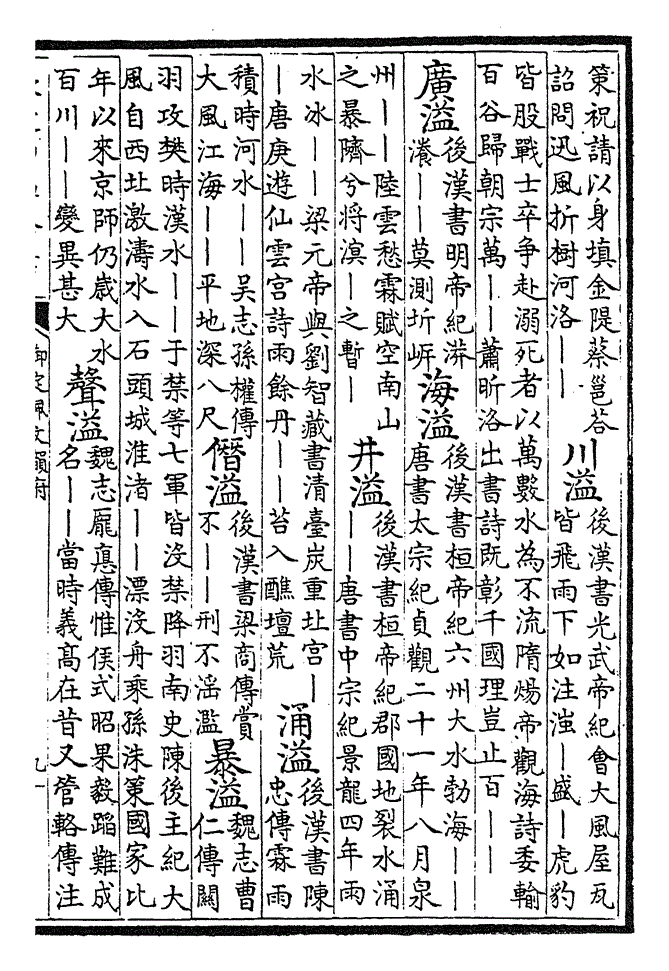 策祝請以身填金隄蔡邕荅
詔問迅風折樹河洛——
川溢
後漢書光武帝紀會大風屋瓦
皆飛雨下如注滍—盛—虎豹
皆股戰士卒争赴溺死者以萬數水為不流隋煬帝觀海詩委輸
百谷歸朝宗萬——蕭昕洛出書詩既彰千國理豈止百——
廣溢
後漢書明帝紀漭
瀁——莫測圻岸
海溢
後漢書桓帝紀六州大水勃海——
唐書太宗紀貞觀二十一年八月泉
州——陸雲愁霖賦空南山
之暴隮兮將溟—之暫—
井溢
後漢書桓帝紀郡國地裂水涌
——唐書中宗紀景龍四年雨
水冰——梁元帝與劉智藏書清臺炭重北宮—
—唐庚遊仙雲宮詩雨餘丹——苔入醮壇荒
涌溢
後漢書陳
忠傳霖雨
積時河水——吴志孫權傳
大風江海——平地深八尺
僭溢
後漢書梁商傳賞
不——刑不淫濫
暴溢
魏志曹
仁傳關
羽攻樊時漢水——于禁等七軍皆沒禁降羽南史陳後主紀大
風自西北激濤水入石頭城淮渚——漂沒舟乘孫洙策國家比
年以來京師仍歲大水
百川——變異甚大
聲溢
魏志龐悳傳惟侯式昭果毅蹈難成
名——當時義髙在昔又管輅傳注
御定佩文韻府